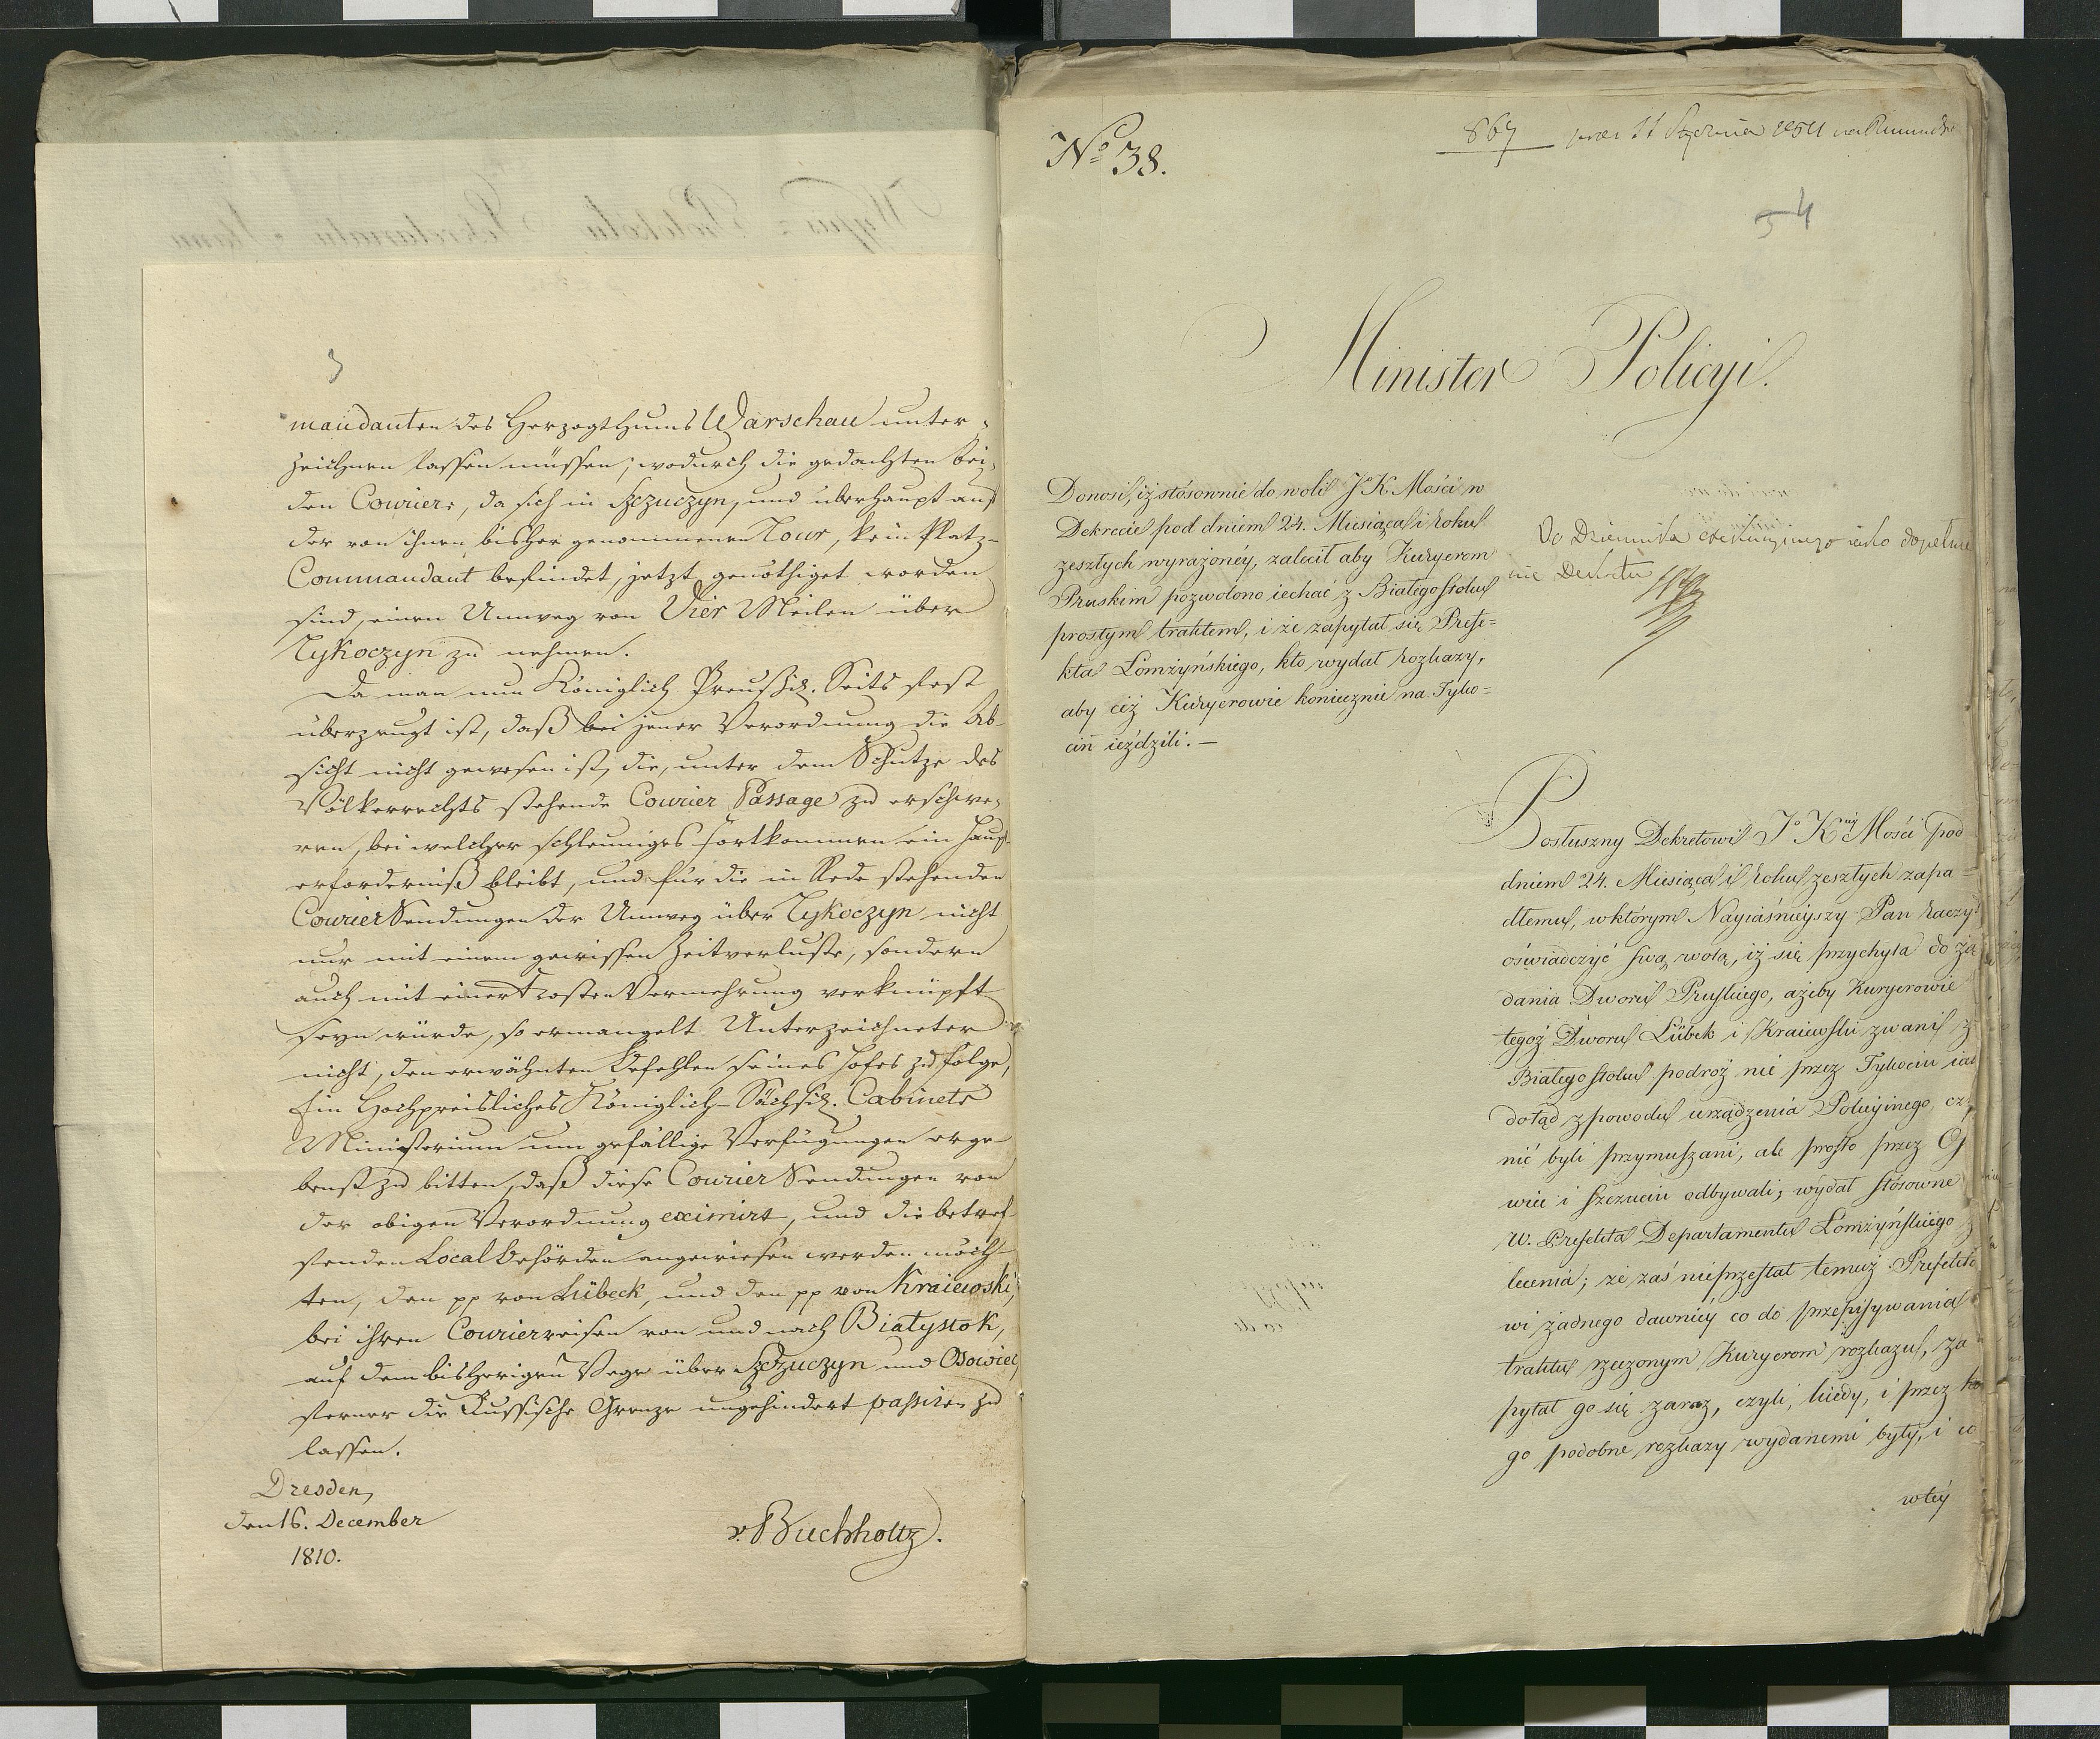 mandanten des Herzogthums Warschau unter-
zeichnen lassen müssen; wodurch die gedachten bei-
den Courier, da sich in Szczuczyn, und überhaupt auf
der von ihnen bisher genommenen Tour, kein Platz-
Commandant befindet, jetzt genöthiget worden
sind, einen Umweg von Vier Meilen über
Tykoczyn zu nehmen.
Da man nun Königlich Preußisch. Seits fest
überzeugt ist, daß bei jener Verordnung die Ab-
sicht nicht gewesen ist, die, unter dem Schutze des
Völkerrechts stehende Courier Passage zu erschwe-
ren, bei welcher schleuniges Fortkommen ein Haupt-
erforderniß bleibt, und für die in Rede stehenden
Courier Sendungen der Umweg über Tykoczyn nicht
nur mit einem gewissen Zeitverluste, sondern
auch mit einer Kosten Vermehrung verknüpft
seyn würde, so ermangelt Unterzeichneter
nicht, den erwähnten Befehlen seines Hofes zu folge,
Ein Hochpreisliches Königlich-Sächsisch. Cabinets
Ministerium um gefällige Verfügungen erge-
benst zu bitten, daß diese Courier Sendungen von
der obigen Verordnung eximirt, und die betref-
fenden Local Behörden angewiesen werden möch-
ten, den pp von Lübeck, und den pp von Kraiewski,
bei ihren Courierreisen von und nach Białystok,
auf dem bisherigen Wege über Szczuczyn und Osowiec,
ferner die Russische Grenze ungehindert passiren zu
lassen.
Dresden,
den 16. December
1810.
v. Buchholtz.
No 38.
867
54
Minister Policyi.
Donosi, iż stósownie do woli Jo K. Mości w
Dekrecie pod dniem 24. Miesiąca i Roku
zeszłych wyrażonéy, zalecił aby Kuryerom
Pruskim pozwolono iechać z Białegostoku
prostym traktem, i że zapytał się Prefe=
kta Łomżyńskiego, kto wydał rozkazy,
aby ciż Kuryerowie koniecznie na Tyko=
cin ieździli. —
Do Dziennika
nie Dekretu
Posłuszny Dekretowi Jo Kney Mości pod
dniem 24. Miesiąca i Roku zeszłych zapa=
dłemu, w którym Nayiaśnieyszy Pan raczył
oświadczyć swą wolą, iż się przychyla do żą
dania Dworu Pruskiego, ażeby Kuryerowie
tegoż Dworu Lübek i Kraiewski zwani z
Białegostoku podróż nie przez Tykocin iak
dotąd z powodu urządzenia Policyinego czy
nić byli przymuszani, ale prosto przez O
wiec i Szczucin odbywali; wydał stósowne
W. Prefekta Departamentu Łomżyńskiego z
lecenia; że zaś nieprzesłał temuż Prefekto
wi żadnego dawniey co do przepisywania
traktu rzeczonym Kuryerom rozkazu, za
pytał go się zaraz, czyli, kiedy, i przez ko
go podobne rozkazy wydanemi były, i co
wtéy